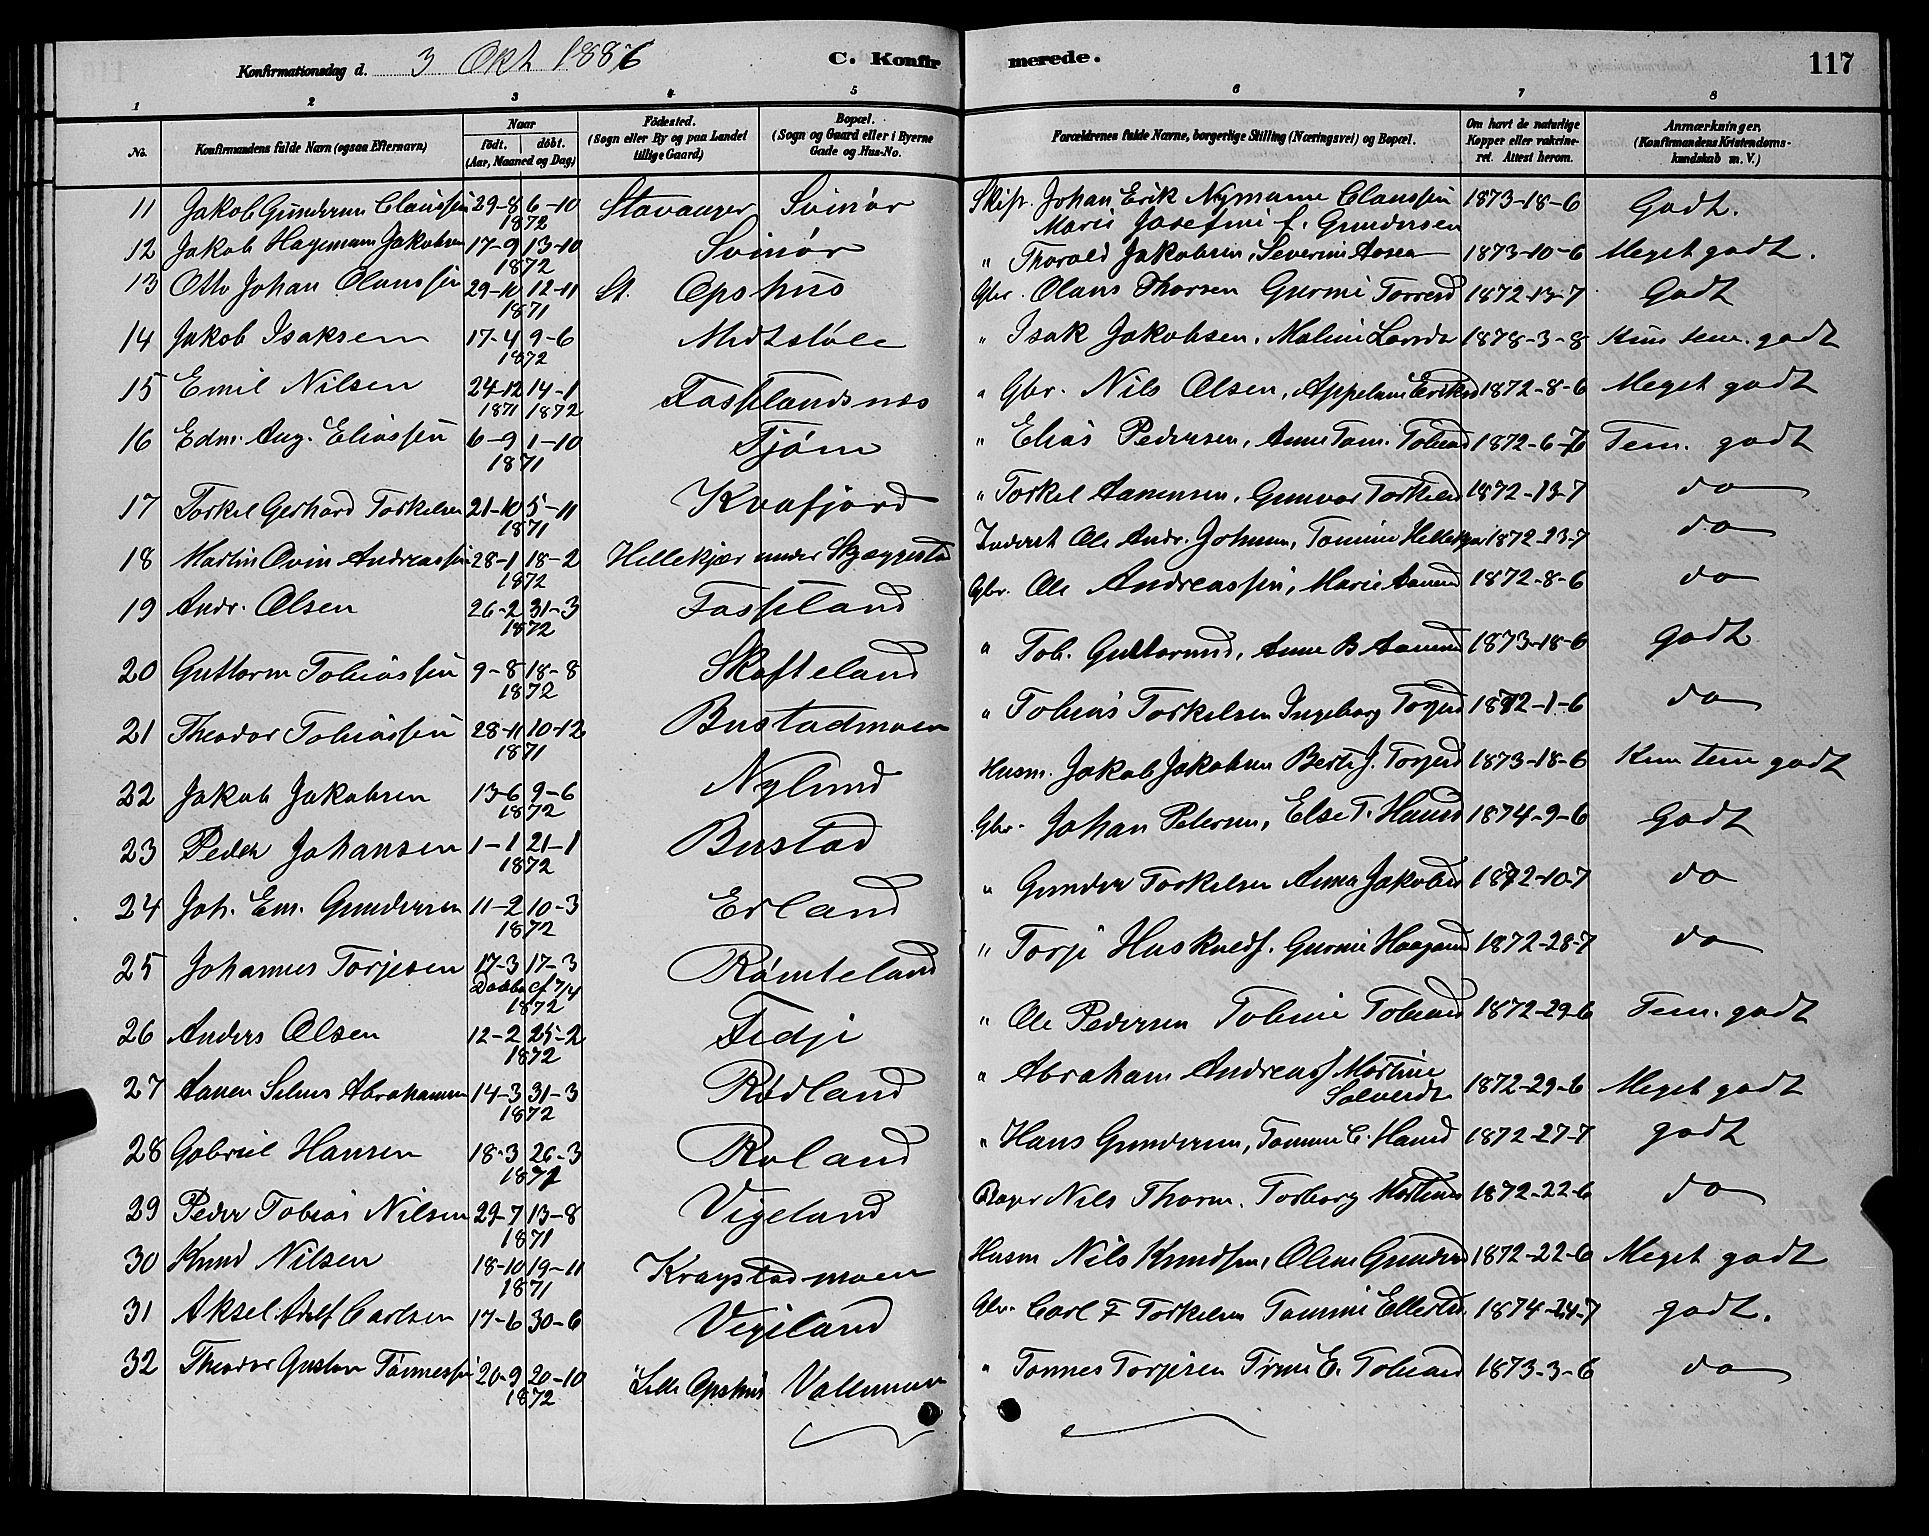 Konfirmationsdag d. 3 Okt 1886 C. Konfirmerede. 117
1 2 3 4 5 6 7 8
No. Konfirmandens fulde Navn (ogsaa Efternavn) Naar födt. döbt. (Aar, Maaned og Dag) Födested. (Sogn eller By og paa Landet tillige Gaard) Bopæl. (Sogn og Gaard eller i Byerne Gade og Hus-No. Forældrenes fulde Navne, borgerlige Stilling (Næringsvei) og Bopæl. Om havt de naturlige Kopper eller vakcineret. Attest herom. Anmærkninger. (Konfirmandens Kristendomskundskab m. V.)
11 Jakob Gundersen Claussen 29-8 6-10 1872 Stavanger Svinør Skipr. Johan Erik Nymann Claussen Marie Josefine f. Gundersen 1873-18-6 Godt.
12 Jakob Hagemann Jakobsen 17-9 13-10 1872 Svinør " Thorvald Jakobsen, Severine Aasen 1873-10-6 Meget godt.
13 Otto Johan Olaussen 29-10 12-11 1871 St. Opshus Gbr. Olaus Thorsen Gurine Torresd 1872-13-7 Godt
14 Jakob Isaksen 17-4 9-6 1872 Midtsløle " Isak Jakobsen, Maline Larsdr 1878-3-8 Kun tem. godt
15 Emil Nilsen 24-12 14-1 1871 1872 Fasselandsnes " Gbr. Nils Olsen, Appelone Eriksd 1872-8-6 Meget godt
16 Edm. Aug. Eliassen 6-9 1-10 1871 Tjøm " Elias Pedersen, Anne Tom. Tobiasd 1872-6-7 Tem. godt
17 Torkel Gerhard Torkelsen 21-10 5-11 1871 Kvafjord " Torkel Aanensen, Gunvor Torkelsd 1872-13-7 do
18 Martin Ovin Andreassen 28-1 18-2 1872 Hellekjær under Skjæggestad Inderst Ole Andr. Johnsen, Tomine Hellekjær 1872-23-7 do
19 Andr. Olsen 26-2 31-3 1872 Fasseland Gbr. Ole Andreassen, Marie Aanensd 1872-8-6 do
20 Guttorm Tobiassen 9-8 18-8 1872 Skofteland " Tob. Guttormsd, Anne B Aanensd 1873-18-6 godt
21 Theodor Tobiassen 28-11 10-12 1871 Bustadmoen " Tobias Torkelsen Ingeborg Torjesd 1872-1-6 do
22 Jakob Jakobsen 13-6 9-6 1872 Nylund Husm. Jakob Jakobsen Berte J. Torjesd 1873-18-6 Kun tem godt
23 Peder Johansen 1-1 21-1 1872 Bustad Gbr. Johan Petersen, Else T. Hansd 1874-9-6 Godt
24 Joh. Em. Gundersen 11-2 10-3 1872 Erland " Gunder Torkelsen Anna Jakobsd 1872-10-7 do
25 Johannes Torjesen 17-3 17-3 Daabn cf 7/4 1872 Rømteland " Torje Huskvedf. Gurine Haagensd 1872-28-7 do
26 Anders Olsen 12-2 25-2 1872 Fidje " Ole Pedersen Tobine Tobiasd 1872-29-6 Tem. godt
27 Aanen Selius Abrahamsen 14-3 31-3 1872 Rødland " Abraham Andreasf Martine Salvesdr 1872-29-6 Meget godt
28 Gabriel Hansen 18-3 26-3 1872 Roland " Hans Gundersen, Tomine C. Hansd 1872-27-7 godt
29 Peder Tobias Nilsen 29-7 13-8 1871 Vigeland Nils Thorsn. Torborg Mortensd 1872-22-6 do
30 Knud Nilsen 18-10 19-11 1871 Kragstadmoen Husm Nils Knudsen, Oline Gundersd 1872-22-6 Meget godt
31 Aksel Adolf Carlsen 17-6 30-6 Vigeland Gbr. Carl F Torkelsen Tomine Ellertsd. 1874-24-7 godt.
32 Theodor Gustav Tønnessen 20-9 20-10 1872 Lille Opshus Vallemoen " Tønnes Torjesen Trine E. Tobiasd 1873-3-6 do